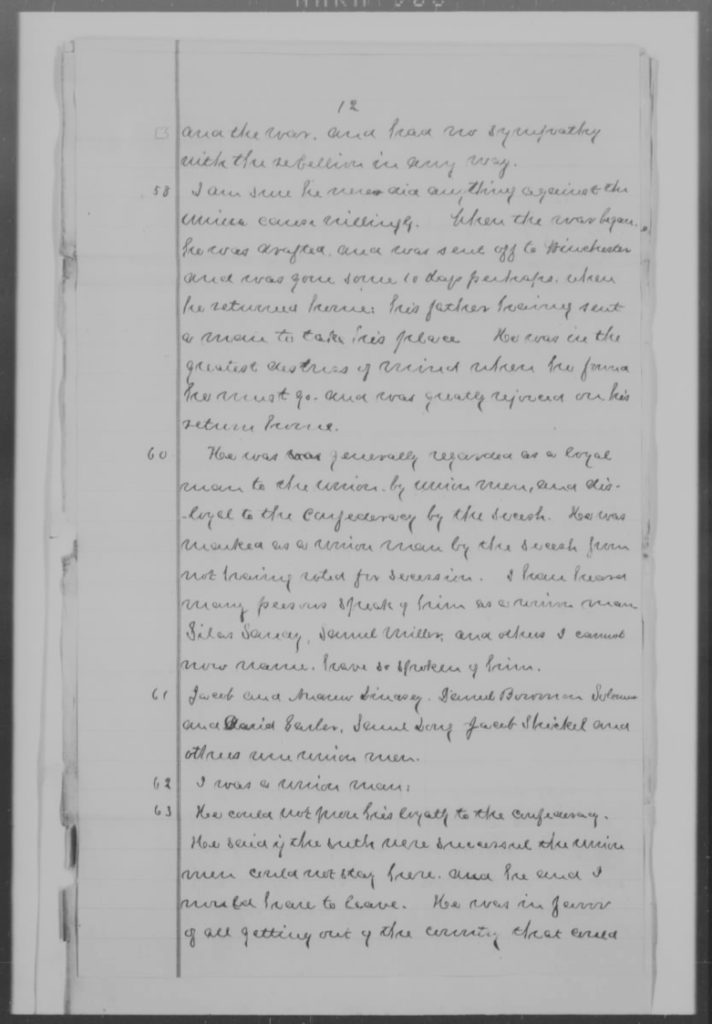 12
and the war. and had no sympathy
with the rebellion in any way.
58 I am sure he never did anything against the
Union cause willingly. When the war began
he was drafted, and was sent off to Winchester
and was gone some 10 days perhaps. when
he returned home: his father having sent
a man to take his place He was in the
greatest distress of mind when he found
he must go. and was greatly rejoiced on his
return home.
60 He was was generally regarded as a loyal
man to the union. by union men, and dis-
-loyal to the confederacy by the secesh. He was
marked as a union man by the secesh from
not having voted for secession. I have heard
many persons speak of him as a union man
Silas Samuel Miller, and others I cannot
now name. have so spoken of him.
61 Jacob and Andrew Lindsey. Daniel Bowman Solomon
and David Garber, Samuel Long Jacob Shickel and
others were union men.
62 I was a union man:
63 He could not prove his loyalty to the confederacy.
He said if the south were successful the union
men could not stay here. and he and I
would have to leave. He was in favor
of all getting out of the country that could